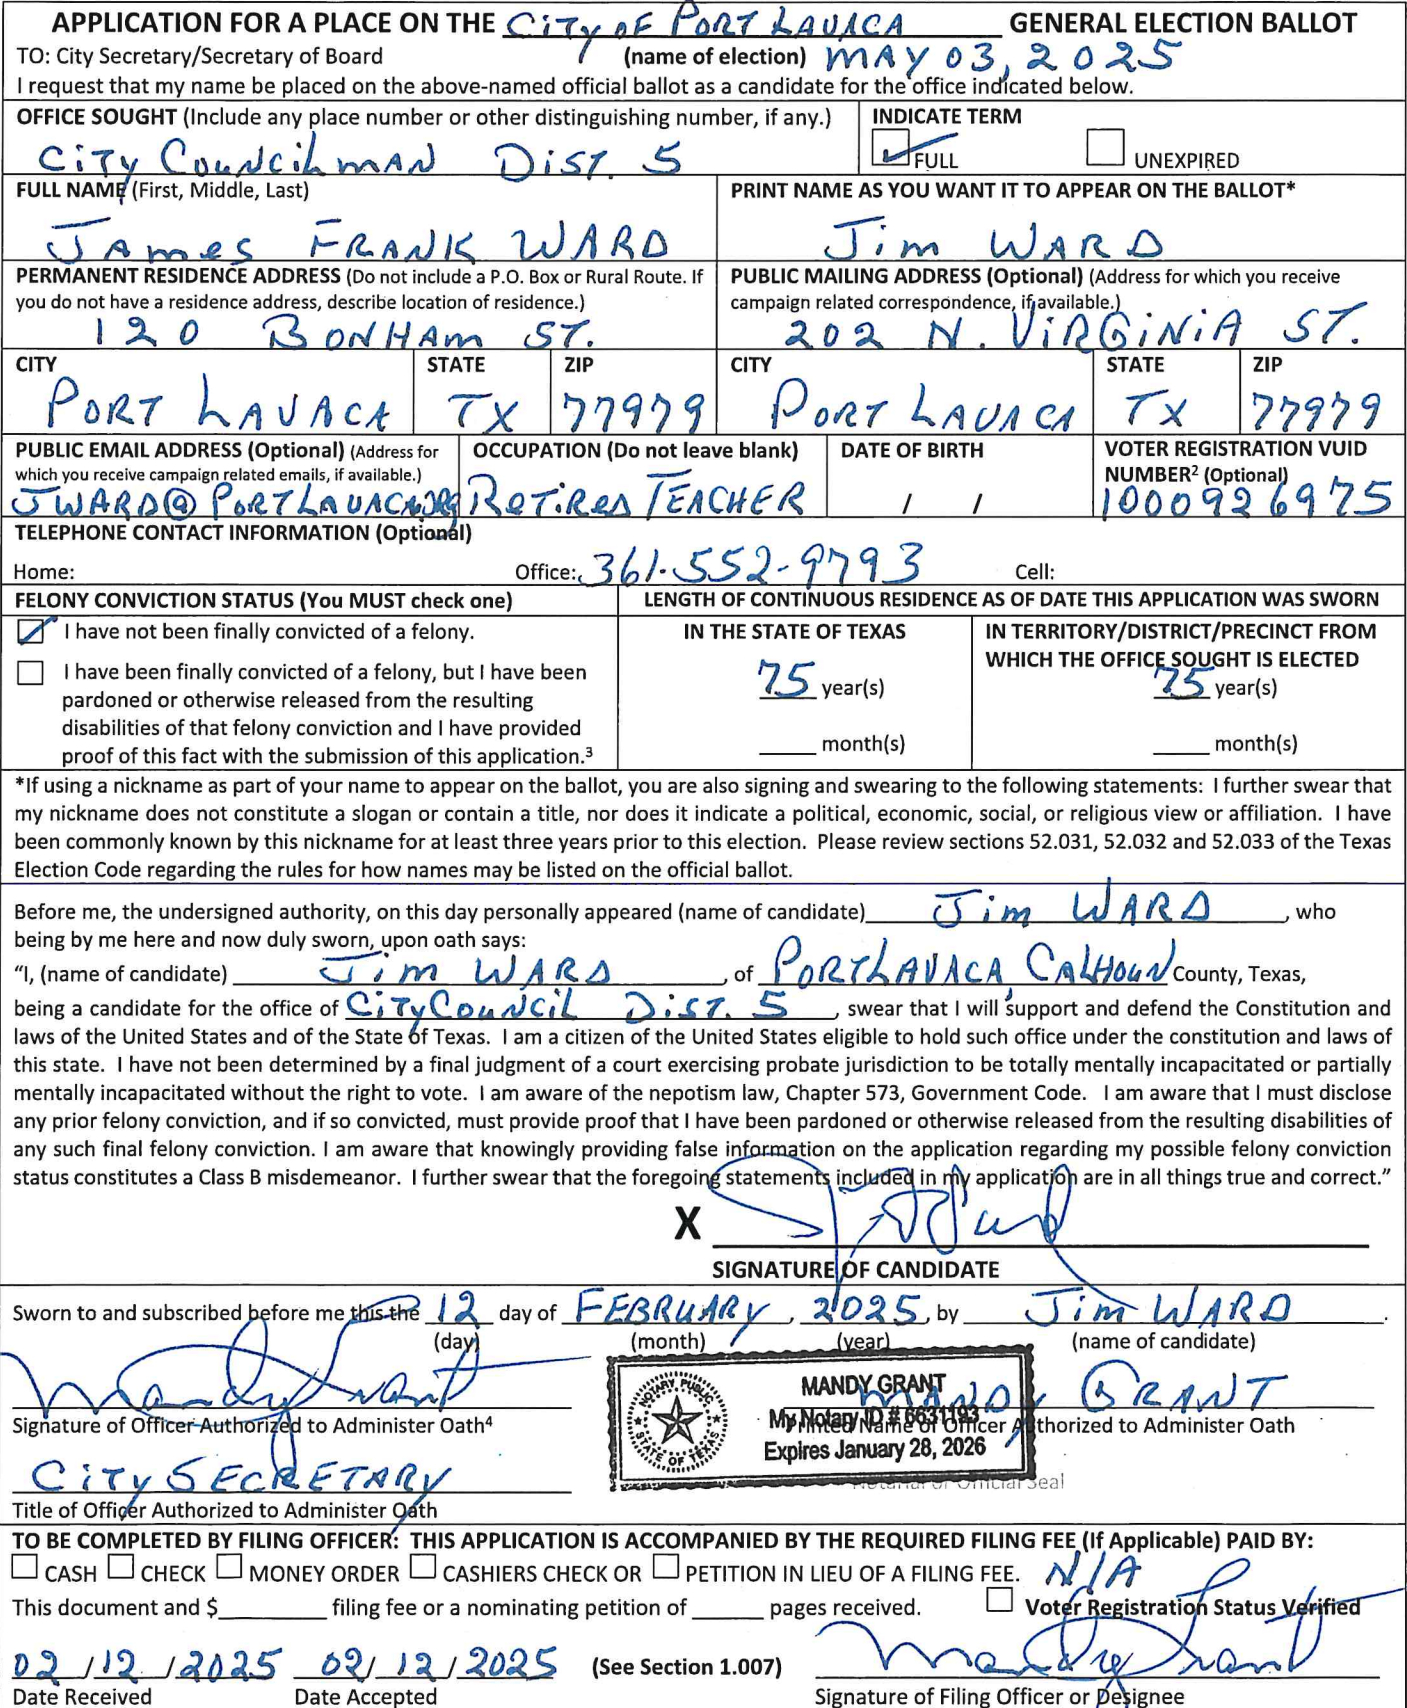 APPLICATION FOR A PLACE ON THE CiTy oF PORT LAVACA GENERAL ELECTION BALLOT
TO: City Secretary/Secretary of Board (name of election) MAY 03, 2025
I request that my name be placed on the above-named official ballot as a candidate for the office indicated below.
OFFICE SOUGHT (Include any place number or other distinguishing number, if any.) INDICATE TERM
CiTy COUNCilMAN DiST. 5 FULL UNEXPIRED
FULL NAME (First, Middle, Last) PRINT NAME AS YOU WANT IT TO APPEAR ON THE BALLOT*
JAmes FRANK WARD Jim WARD
PERMANENT RESIDENCE ADDRESS (Do not include a P.O. Box or Rural Route. If you do not have a residence address, describe location of residence.)
PUBLIC MAILING ADDRESS (Optional) (Address for which you receive campaign related correspondence, if available.)
120 BONHAm ST. 202 N. ViRGiNiA ST.
CITY STATE ZIP CITY STATE ZIP
PORT LAVACA TX 77979 PORT LAVACA TX 77979
PUBLIC EMAIL ADDRESS (Optional) (Address for which you receive campaign related emails, if available.)
OCCUPATION (Do not leave blank) DATE OF BIRTH VOTER REGISTRATION VUID NUMBER² (Optional)
JWARD@PORTLAVACA.ORG RETiReD TEACHER / / 1000926975
TELEPHONE CONTACT INFORMATION (Optional)
Home: Office: 361-552-9793 Cell:
FELONY CONVICTION STATUS (You MUST check one) LENGTH OF CONTINUOUS RESIDENCE AS OF DATE THIS APPLICATION WAS SWORN
I have not been finally convicted of a felony.
I have been finally convicted of a felony, but I have been
pardoned or otherwise released from the resulting
disabilities of that felony conviction and I have provided
proof of this fact with the submission of this application.³
IN THE STATE OF TEXAS
75 year(s)
month(s)
IN TERRITORY/DISTRICT/PRECINCT FROM
WHICH THE OFFICE SOUGHT IS ELECTED
75 year(s)
month(s)
*If using a nickname as part of your name to appear on the ballot, you are also signing and swearing to the following statements: I further swear that
my nickname does not constitute a slogan or contain a title, nor does it indicate a political, economic, social, or religious view or affiliation. I have
been commonly known by this nickname for at least three years prior to this election. Please review sections 52.031, 52.032 and 52.033 of the Texas
Election Code regarding the rules for how names may be listed on the official ballot.
Before me, the undersigned authority, on this day personally appeared (name of candidate) Jim WARD, who
being by me here and now duly sworn, upon oath says:
"I, (name of candidate) Jim WARD, of PORT LAVACA, CALHOUN County, Texas,
being a candidate for the office of CiTy COUNCiL DiST. 5, swear that I will support and defend the Constitution and
laws of the United States and of the State of Texas. I am a citizen of the United States eligible to hold such office under the constitution and laws of
this state. I have not been determined by a final judgment of a court exercising probate jurisdiction to be totally mentally incapacitated or partially
mentally incapacitated without the right to vote. I am aware of the nepotism law, Chapter 573, Government Code. I am aware that I must disclose
any prior felony conviction, and if so convicted, must provide proof that I have been pardoned or otherwise released from the resulting disabilities of
any such final felony conviction. I am aware that knowingly providing false information on the application regarding my possible felony conviction
status constitutes a Class B misdemeanor. I further swear that the foregoing statements included in my application are in all things true and correct."
X
SIGNATURE OF CANDIDATE
Sworn to and subscribed before me this the 12 day of FEBRUARY, 2025, by Jim WARD.
(day) (month) (year) (name of candidate)
Mandy Grant MANDY GRANT
Signature of Officer Authorized to Administer Oath⁴ Printed Name of Officer Authorized to Administer Oath
MANDY GRANT
My Notary ID # 6631193
Expires January 28, 2026
NOTARY PUBLIC
STATE OF TEXAS
CiTY SECRETARY
Notarial or Official Seal
Title of Officer Authorized to Administer Oath
TO BE COMPLETED BY FILING OFFICER: THIS APPLICATION IS ACCOMPANIED BY THE REQUIRED FILING FEE (If Applicable) PAID BY:
CASH CHECK MONEY ORDER CASHIERS CHECK OR PETITION IN LIEU OF A FILING FEE. N/A
This document and $ filing fee or a nominating petition of pages received. Voter Registration Status Verified
02/12/2025 02/12/2025 (See Section 1.007) Mandy Grant
Date Received Date Accepted Signature of Filing Officer or Designee